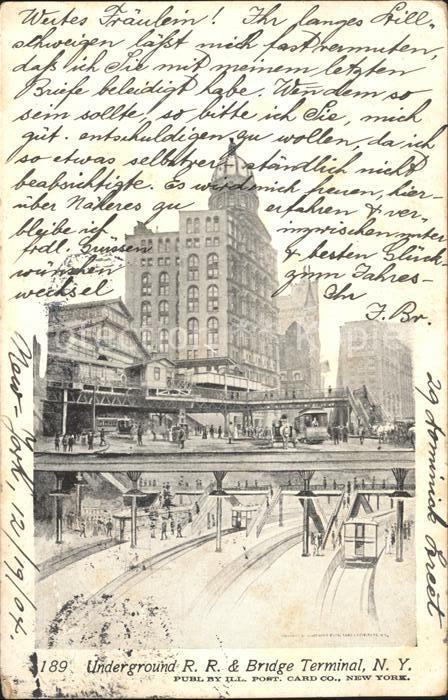 Wertes Fräulein! Ihr langes Still-
schweigen läßt mich fast vermuten,
daß ich Sie mit meinem letzten
Briefe beleidigt habe. Wen dem so
sein sollte, so bitte ich Sie, mich
güt. entschuldigen zu wollen, da ich
so etwas selbstverständlich nicht
beabsichtigte. Es wird mich freuen, hier-
über Näheres zu erfahren & ver-
bleibe ich inzwischen unter
frdl. Grüssen & besten Glück-
wünschen zum Jahres-
wechsel Ihr
F. Br.
New-York, 12/19/04.
29 Dominick Street
189 Underground R. R. & Bridge Terminal, N. Y.
PUBL BY ILL. POST. CARD CO., NEW YORK.